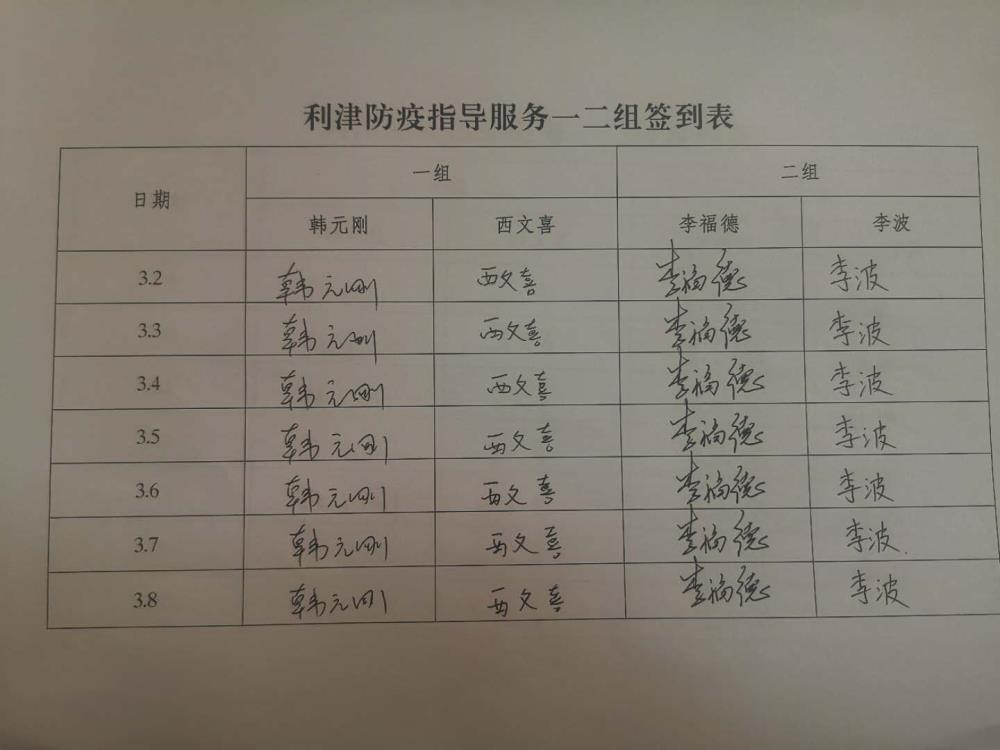 利津防疫指导服务一二组签到表
日期 一组 二组
韩元刚 西文喜 李福德 李波
3.2 韩元刚 西文喜 李福德 李波
3.3 韩元刚 西文喜 李福德 李波
3.4 韩元刚 西文喜 李福德 李波
3.5 韩元刚 西文喜 李福德 李波
3.6 韩元刚 西文喜 李福德 李波
3.7 韩元刚 西文喜 李福德 李波
3.8 韩元刚 西文喜 李福德 李波